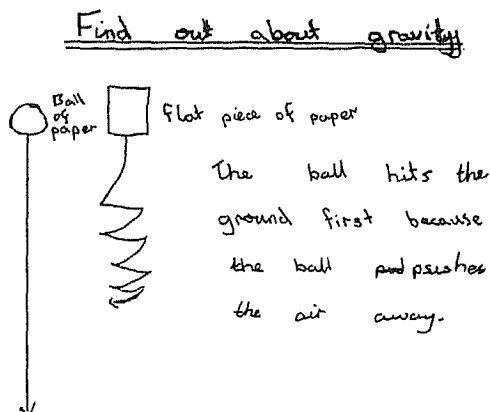 Find out about gravity
Ball
of
paper
flat piece of paper
The ball hits the
ground first because
the ball pushes
the air away.